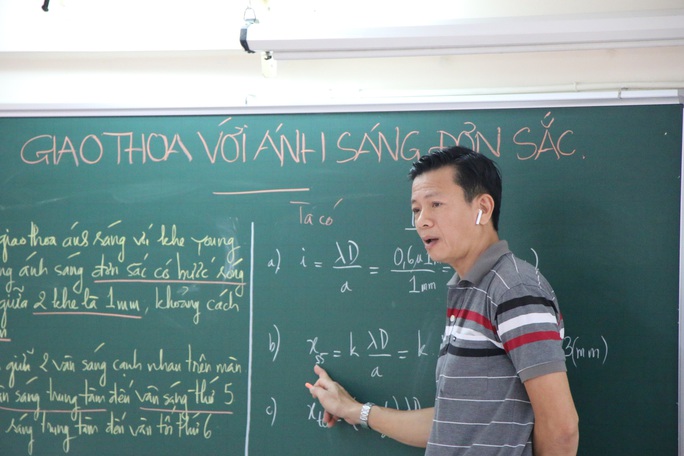 GIAO THOA VỚI ÁNH SÁNG ĐƠN SẮC.
giao thoa ánh sáng với khe Young
ánh sáng đơn sắc có bước sóng
giữa 2 khe là 1mm, khoảng cách
giữa 2 vân sáng cạnh nhau trên màn
sáng trung tâm đến vân sáng thứ 5
sáng trung tâm đến vân tối thứ 6
Ta có
a) i = λD/a = 0,6.μ / 1mm
b) x_s5 = k λD/a = k 3(mm)
c)